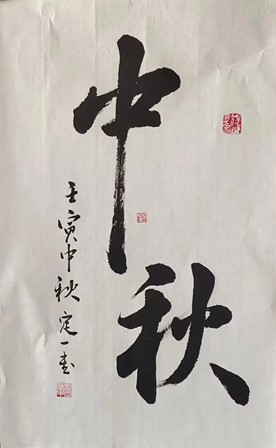 中秋
壬寅中秋定一书